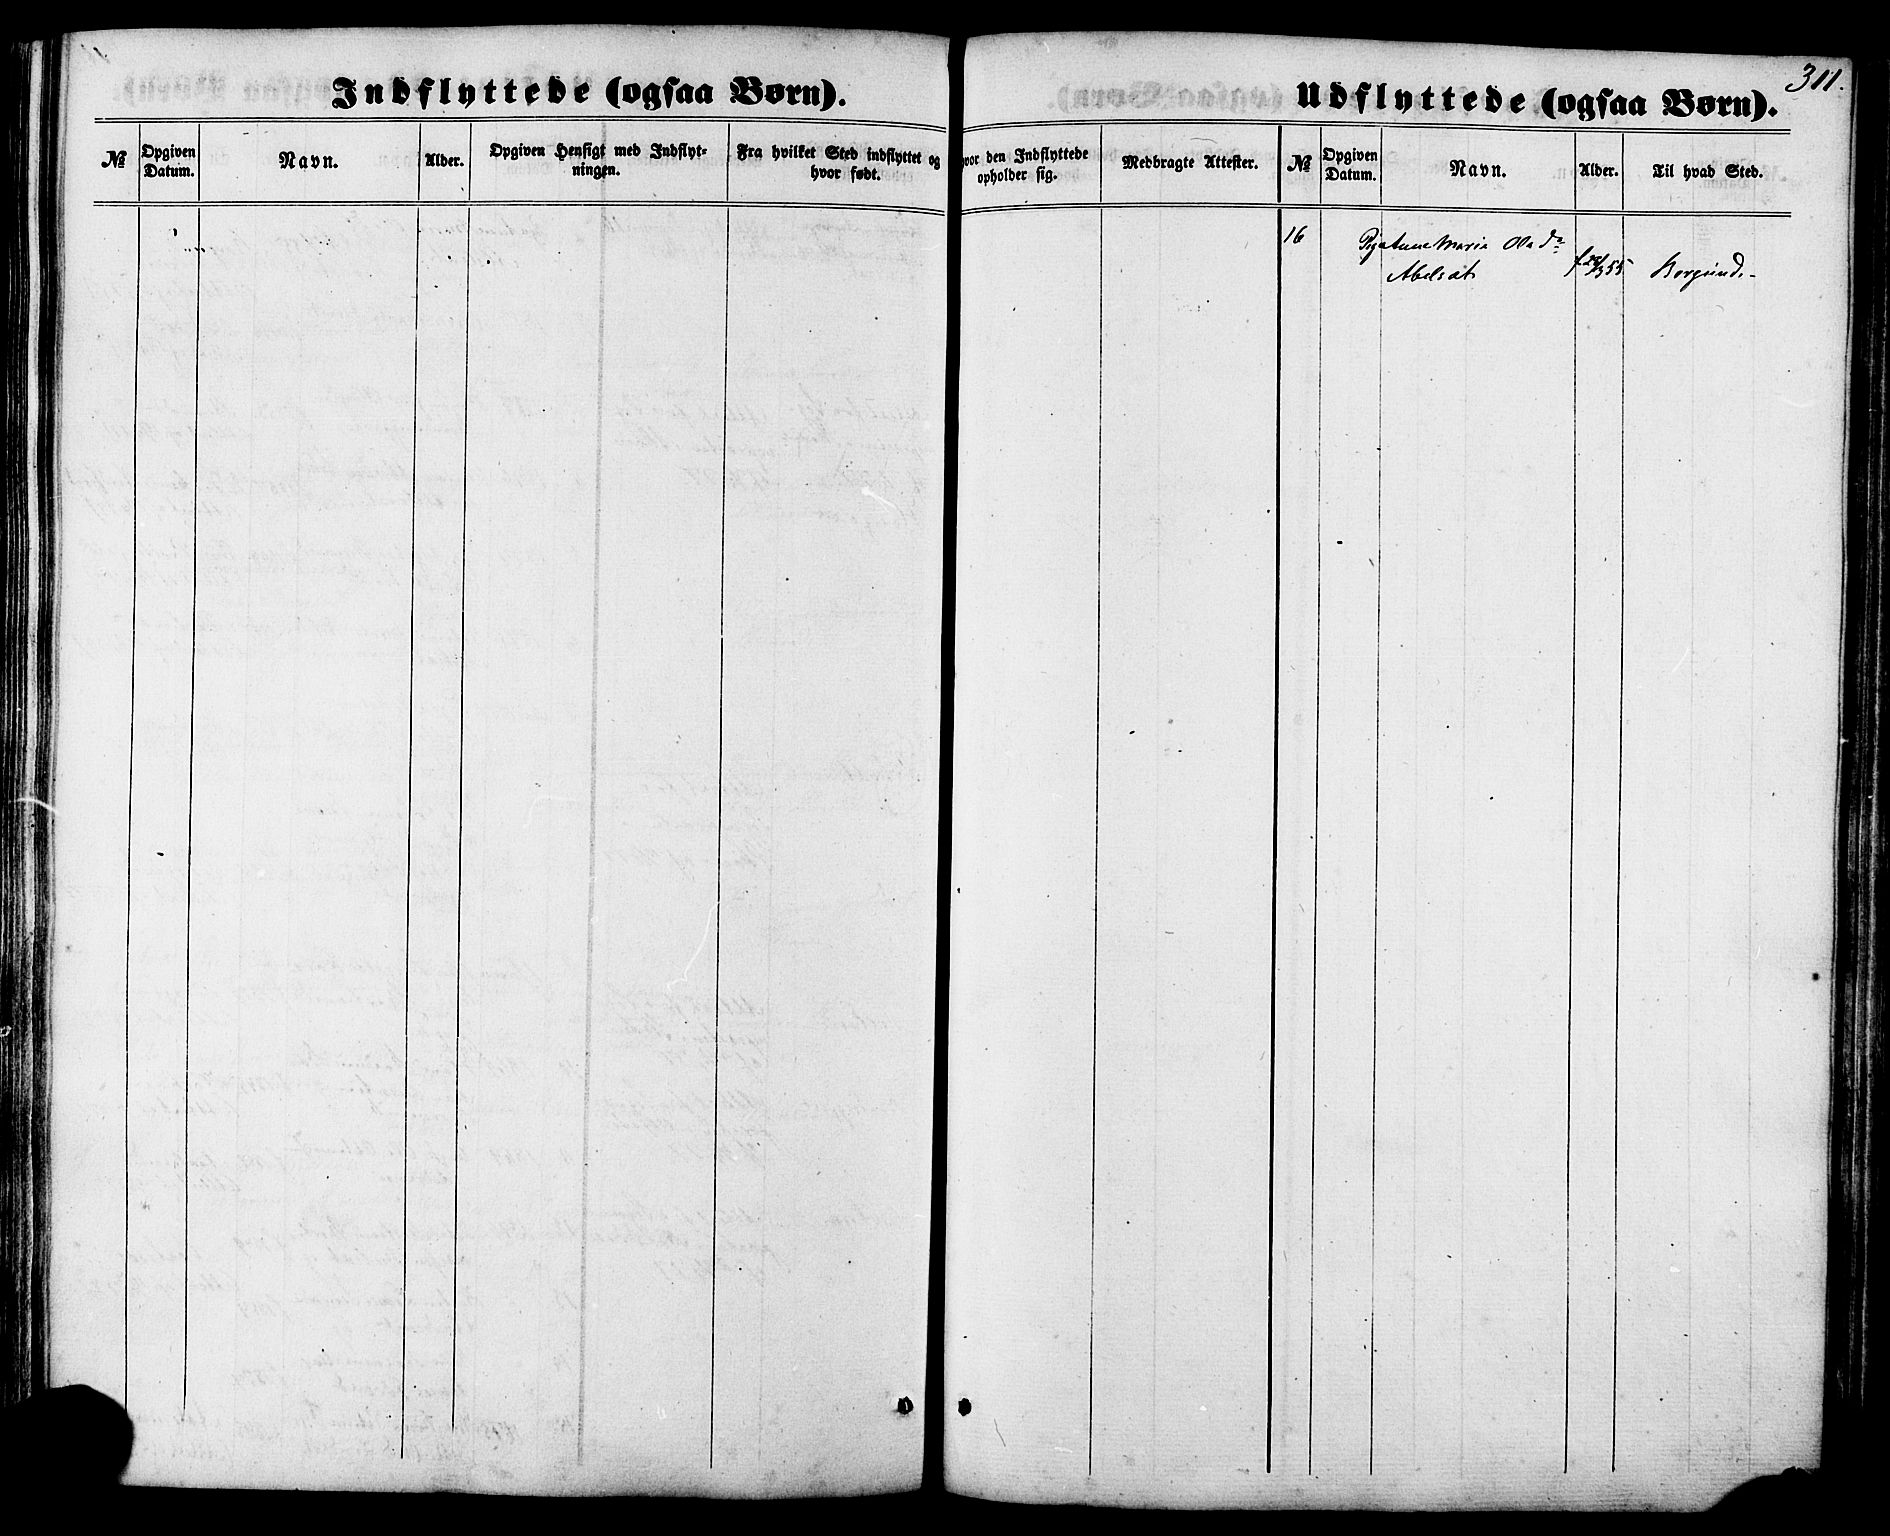 311.
Indflyttede (ogsaa Børn).
Udflyttede (ogsaa Børn).
№
Opgiven Datum.
Navn.
Alder.
Opgiven Hensigt med Indflyt-
ningen.
Fra hvilket Sted indflyttet og
hvor født.
vor den Indflyttede
opholder sig.
Medbragte Attester.
№
Opgiven Datum.
Navn.
Alder.
Til hvad Sted.
16 Maria Ola Dr
Abelsæt f 55 Borgund.